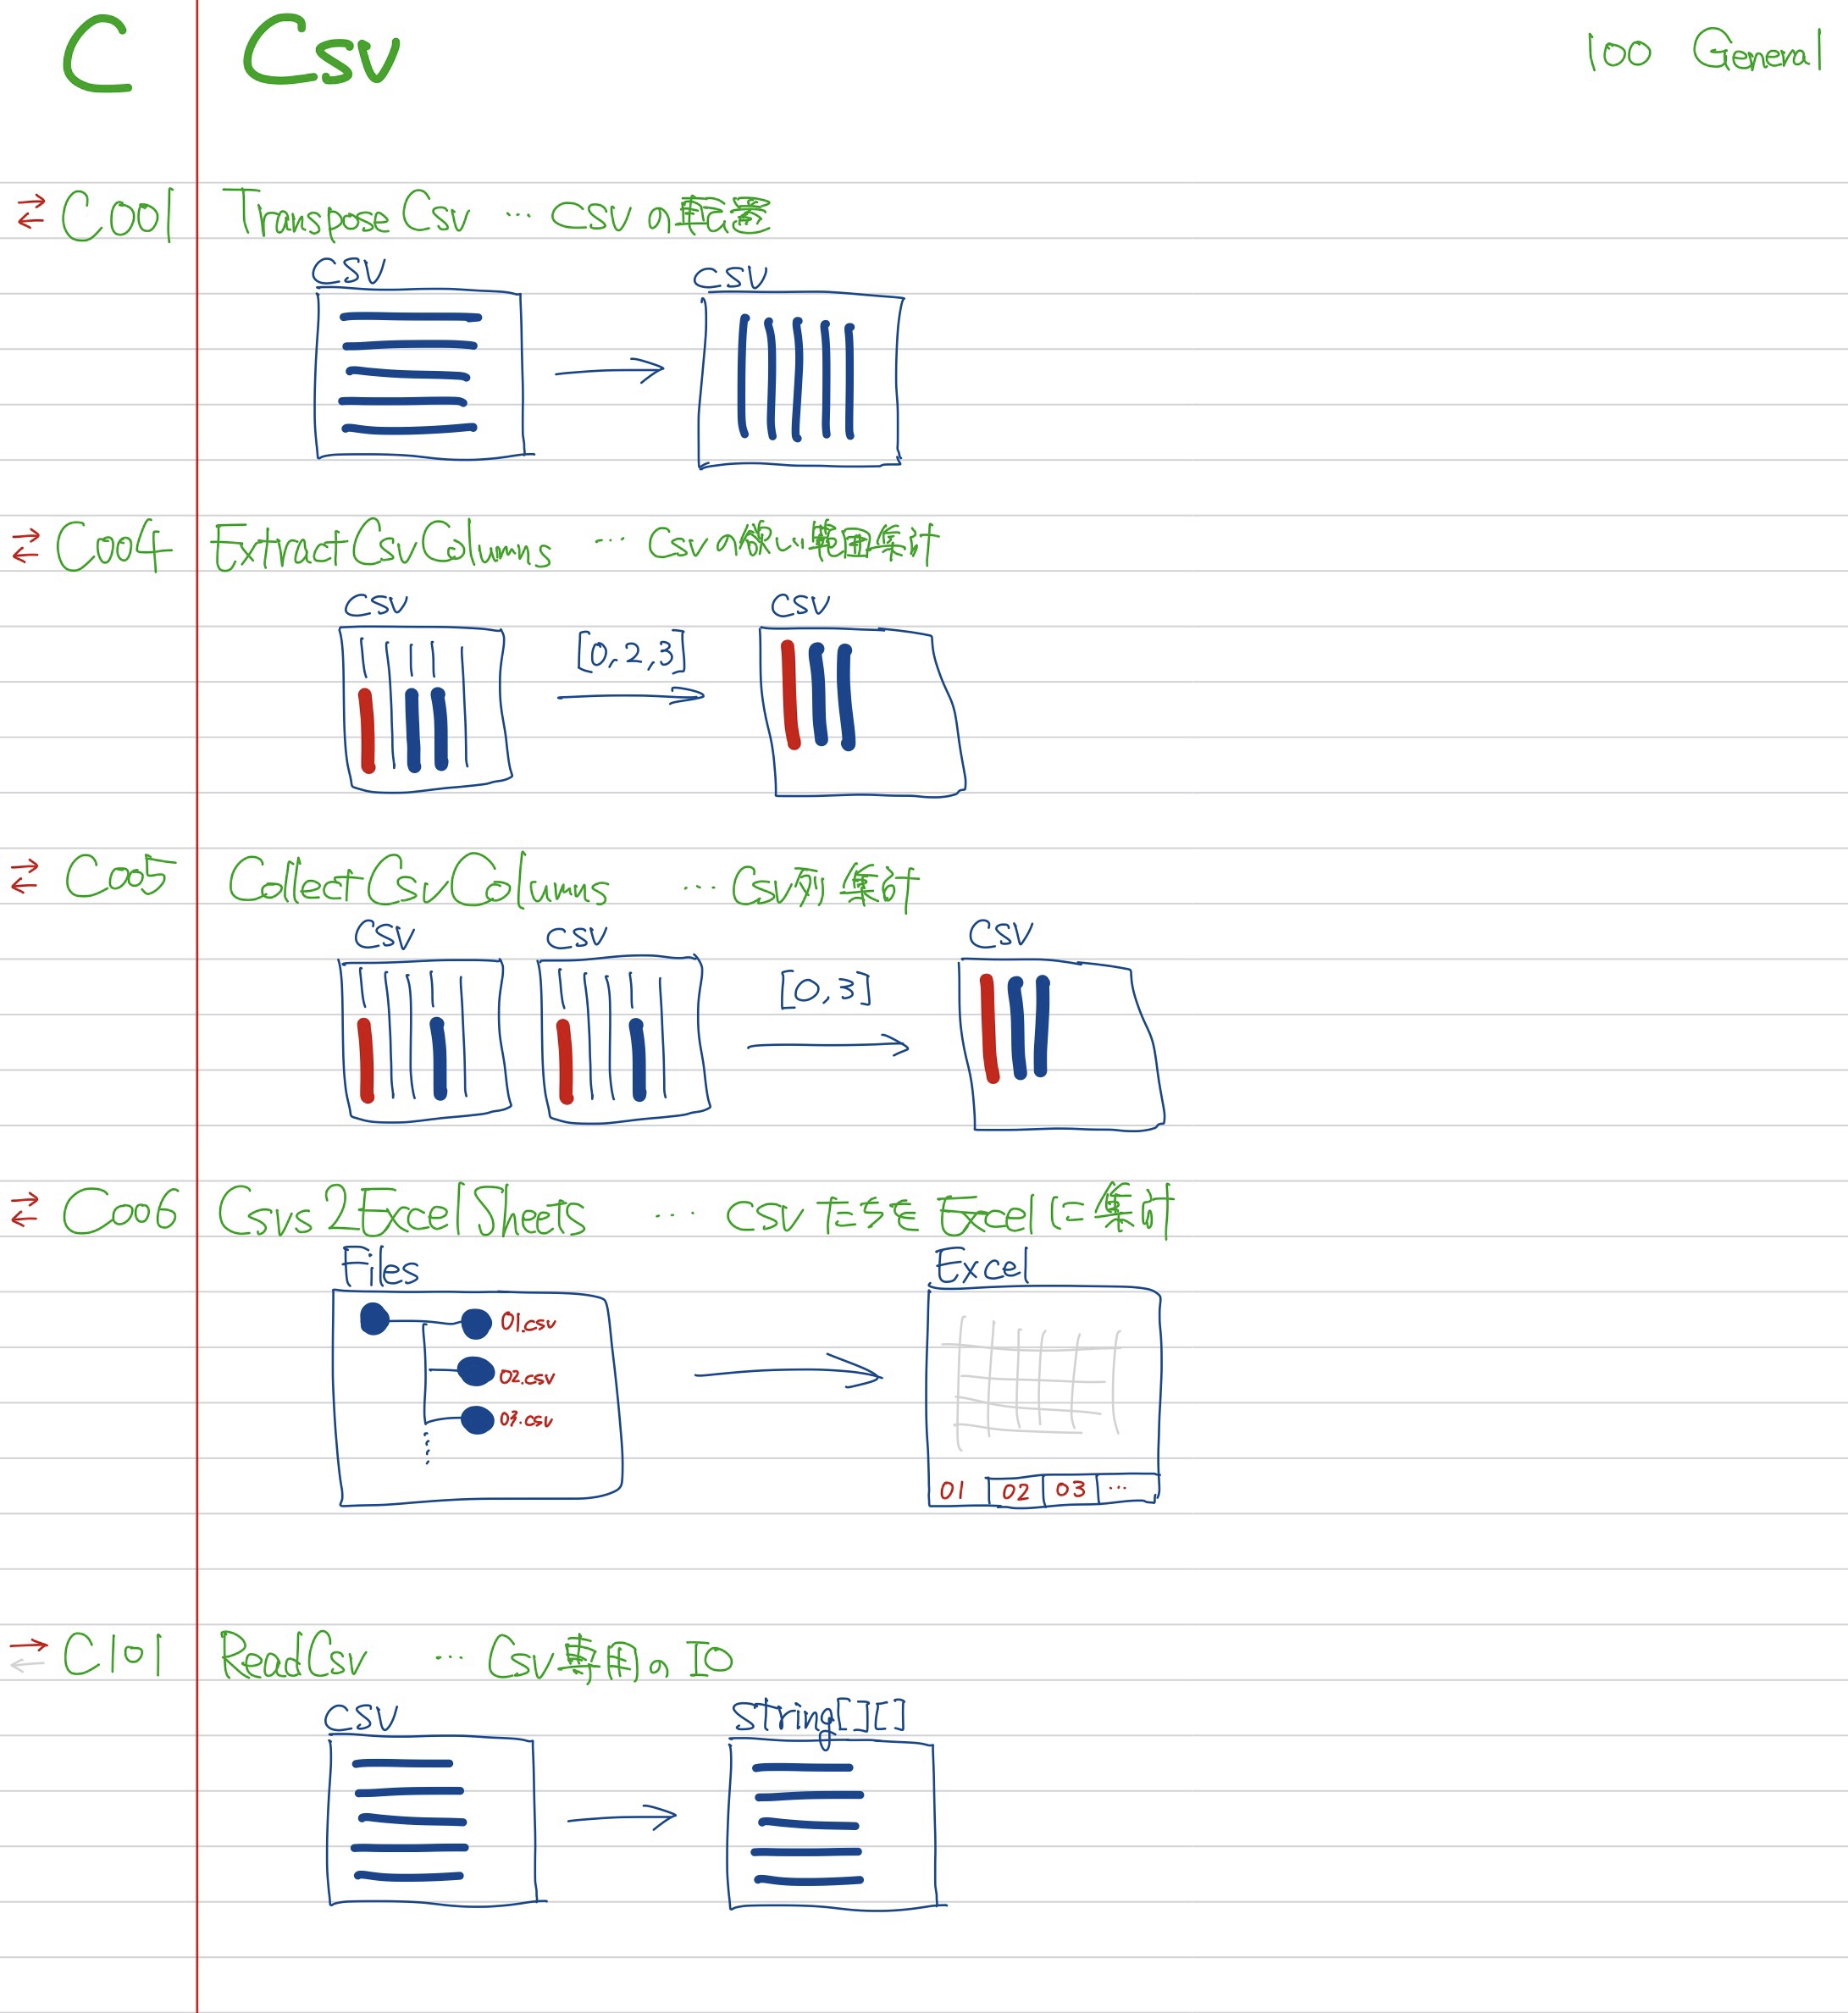 C Csv 100 General
C001 TransposeCsv … CSVの転置
CSV CSV
C004 ExtractCsvColumns … Csvの狭い範囲集計
CSV CSV
[0,2,3]
C005 CollectCsvColumns … Csv列集計
CSV CSV CSV
[0,3]
C006 Csvs2ExcelSheets … CSVたちをExcelに集計
Files Excel
01.csv
02.csv
03.csv
01 02 03 …
C101 ReadCsv … Csv専用のIO
CSV String[][]